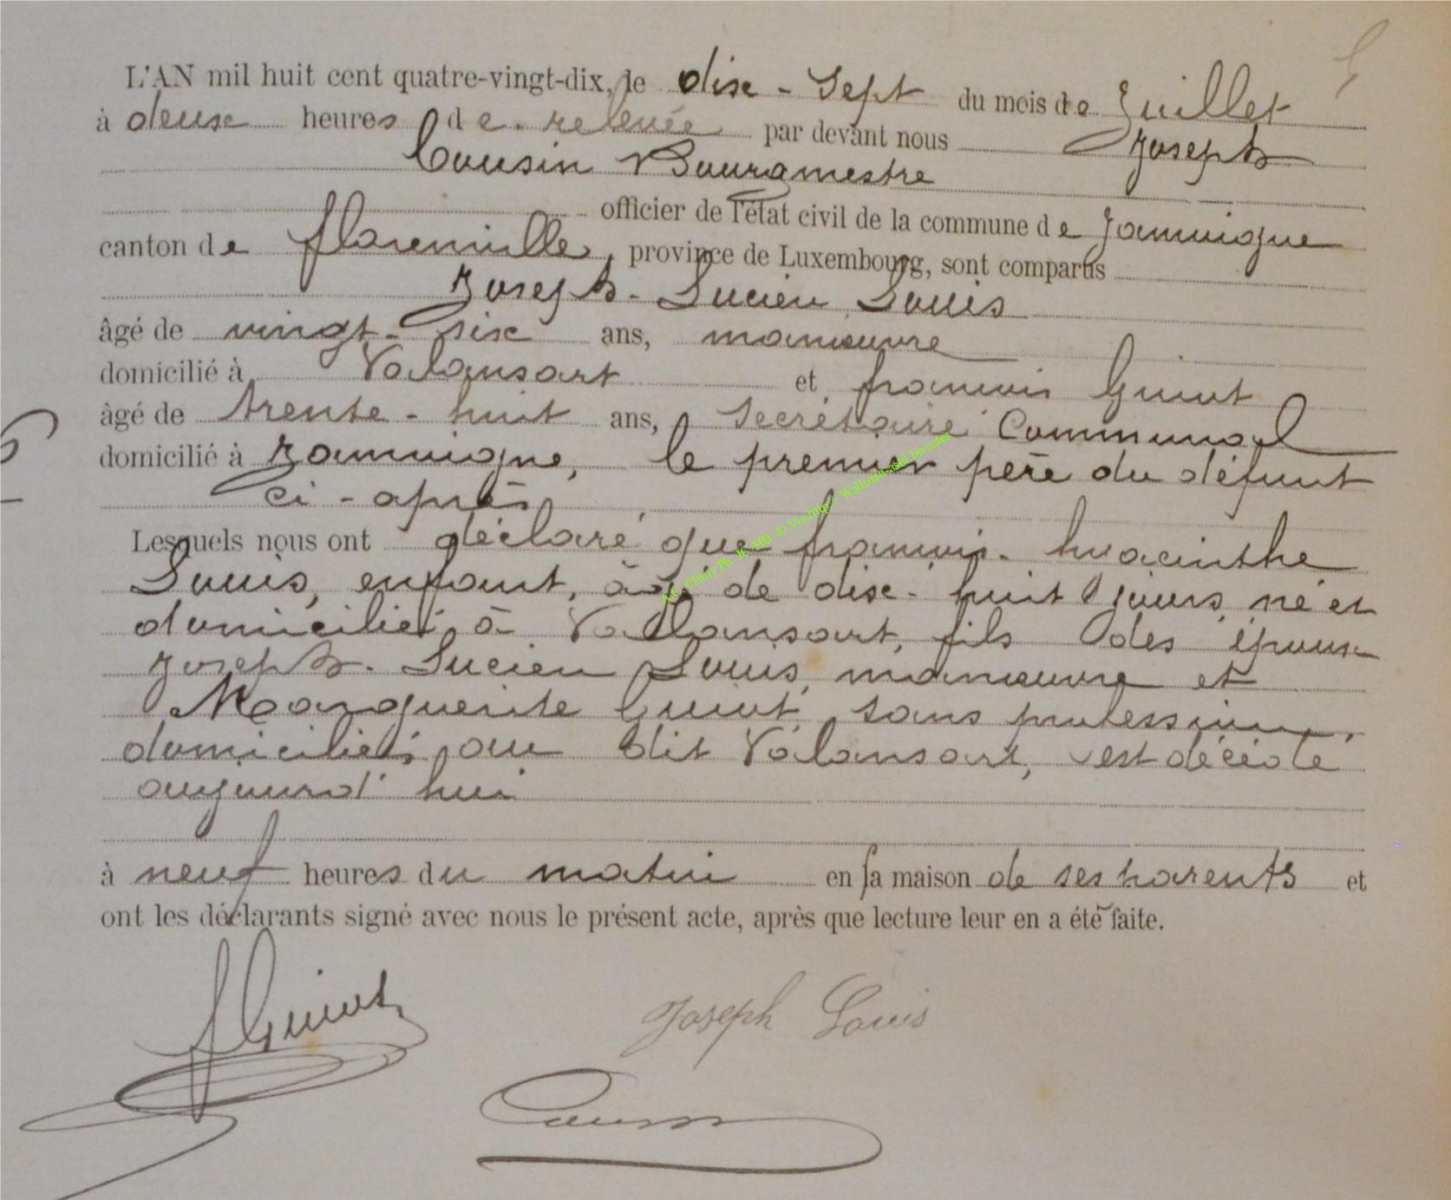 L'AN mil huit cent quatre-vingt-dix, le dix-sept du mois de Juillet
à deux heures de relevée par devant nous Joseph
Cousin Bourgmestre
officier de l'état civil de la commune de Jamoigne
canton de florenville, province de Luxembourg, sont comparus
Joseph-Lucien Louis
âgé de vingt-six ans, manœuvre
domicilié à Valansart et françois Guiot
âgé de trente-huit ans, Secrétaire Communal
domicilié à Jamoigne, le premier père du défunt
ci-après
Lesquels nous ont déclaré que françois-hyacinthe
Louis, enfant, âgé de dix-huit jours, né et
domicilié à Vallansart, fils des époux
Joseph-Lucien Louis, manœuvre et
Marguerite Guiot, sans profession,
domiciliés au dit Valansart, est décédé
aujourd'hui
à neuf heures du matin en sa maison de ses parents et
ont les déclarants signé avec nous le présent acte, après que lecture leur en a été faite.
f Guiot
Joseph Louis
Cousin